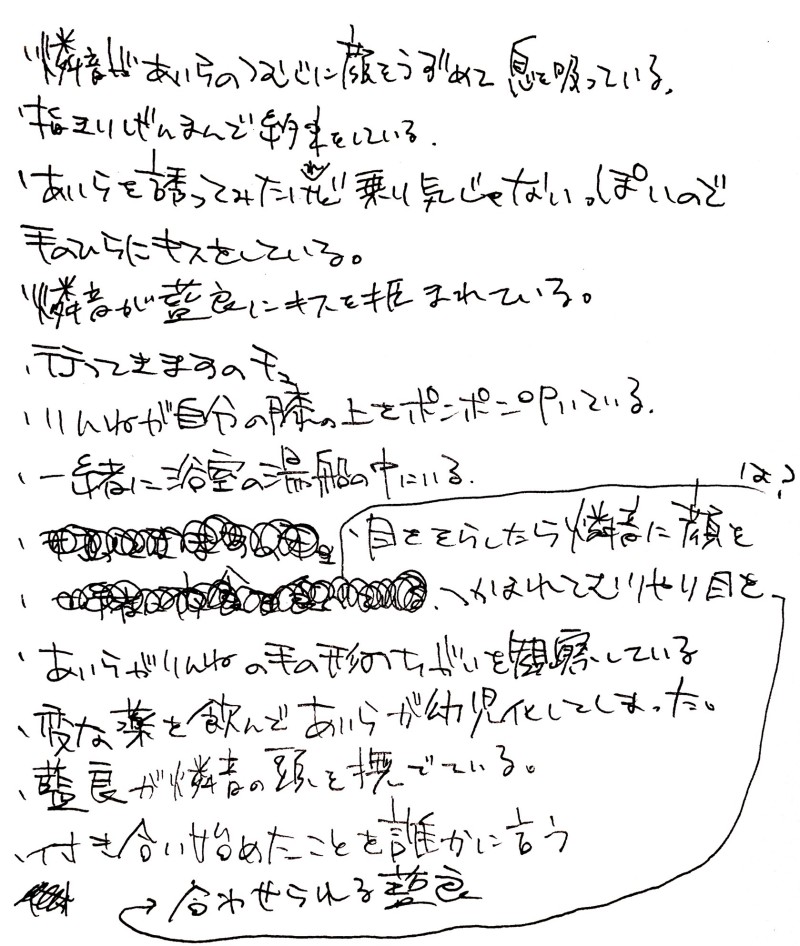 ・燐音があいらのつむじに顔をうずめて息を吸っている。
・指きりげんまんで約束をしている.
・あいらを誘ってみたけれど乗り気じゃないっぽいので
手のひらにキスをしている。
・燐音が藍良にキスを拒まれている。
・行ってきますのチュ
・りんねが自分の膝の上をポンポン叩いている.
・一緒に浴室の湯船の中にいる.
は?
・目をそらしたら燐音に顔を
つかまれてむりやり目を
→合わせられる藍良
・あいらがりんねの手の形のちがいを観察している
・変な薬を飲んであいらが幼児化してしまった。
・藍良が燐音の頭を撫でている。
・付き合い始めたことを誰かに言う